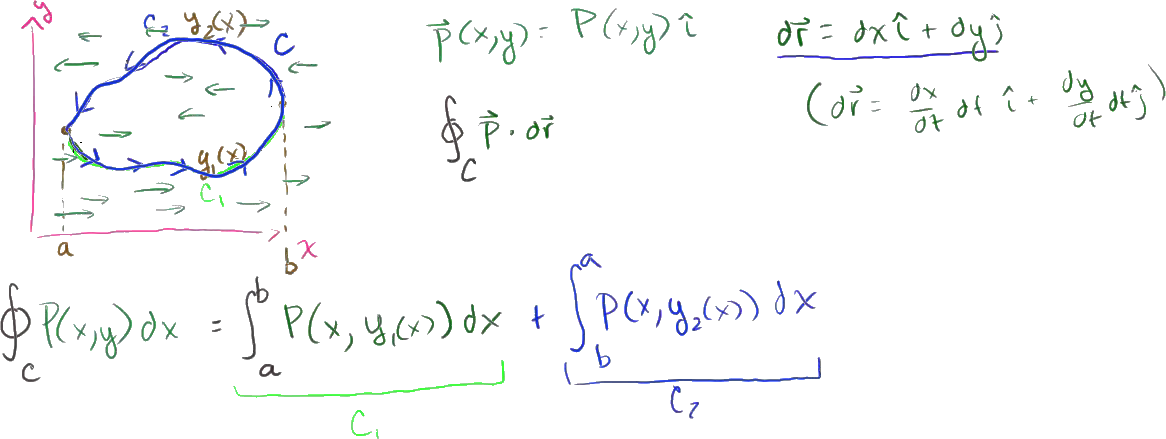 y
C₂ y₂(x) C
y₁(x)
C₁
a b x
p⃗(x,y) = P(x,y) î
∮_C p⃗ · dr⃗
dr⃗ = dx î + dy ĵ
(dr⃗ = dx/dt dt î + dy/dt dt ĵ)
∮_C P(x,y) dx = ∫_a^b P(x, y₁(x)) dx + ∫_b^a P(x, y₂(x)) dx
C₁ C₂